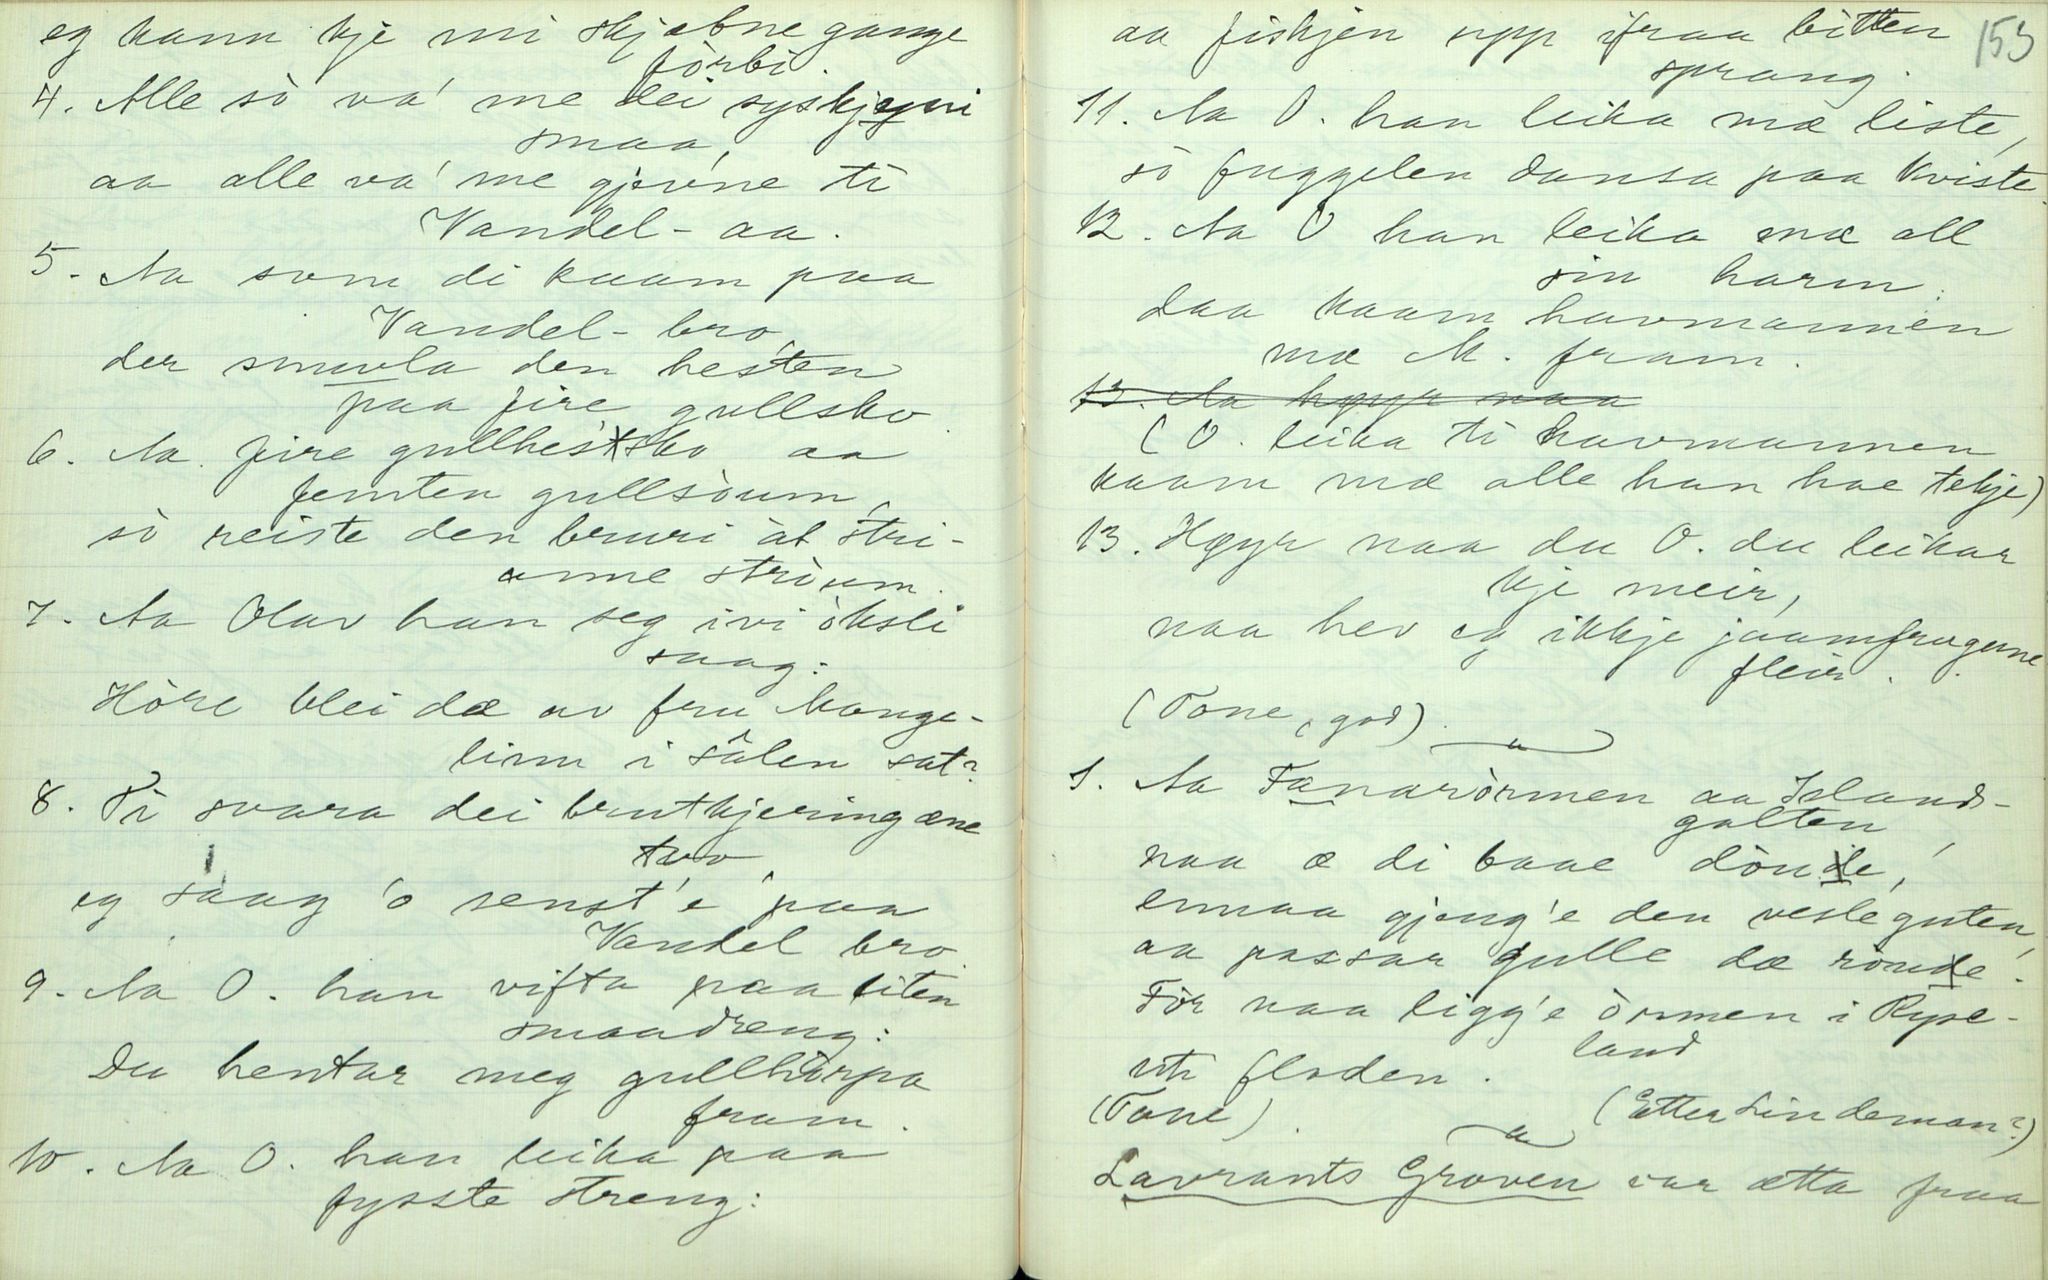 eg kann kje mi skjæbne gange
förbi.
4. Alle sò va' me dei syskjyni
smaa,
aa alle va' me gjevne ti
Vandel-aa.
5. Aa som di kaam paa
Vandel-bro,
der snuvla den hesten
paa fire gullsko.
6. Aa fire gullhestsko aa
femten gullsòum,
sò reiste den bruri àt stri-
anne strìum.
7. Aa Olav han seg ivi òksli
saag:
Hòre blei dæ av fru Mange-
linn i sâlen sat?
8. Ti svara dei brutkjeringæne
tvo
eg saag 'o senst'e paa
Vandel bro.
9. Aa O. han vifta paa liten
smaadreng:
Du hentar meg gullhòrpa
fram.
10. Aa O. han leika paa
fysste streng:
153
aa fiskjen upp ifraa bitten
sprang.
11. Aa O. han leika mæ liste,
sò fuggelen dansa paa kviste.
12. Aa O han leika mæ all
sin harm:
daa kaam havmannen
mæ M. fram.
13. Aa høyr naa
(O. leika ti havmannen
kaam mæ alle han hae tekje)
13. Høyr naa du O. du leikar
kje meir,
naa hev eg ikkje jaamfrugerne
fleir.
(Tone, god).
1. Aa Fanaròrmen aa Islands-
galten,
naa æ di baae dònde,
ennaa gjeng'e den vesleguten,
aa passar gulle dæ ròude.
Fòr naa ligg'e òrmen i Ryse-
land
uti floden.
(Tone). (Etter Lindeman?)
Lavrants Groven var ætta fraa